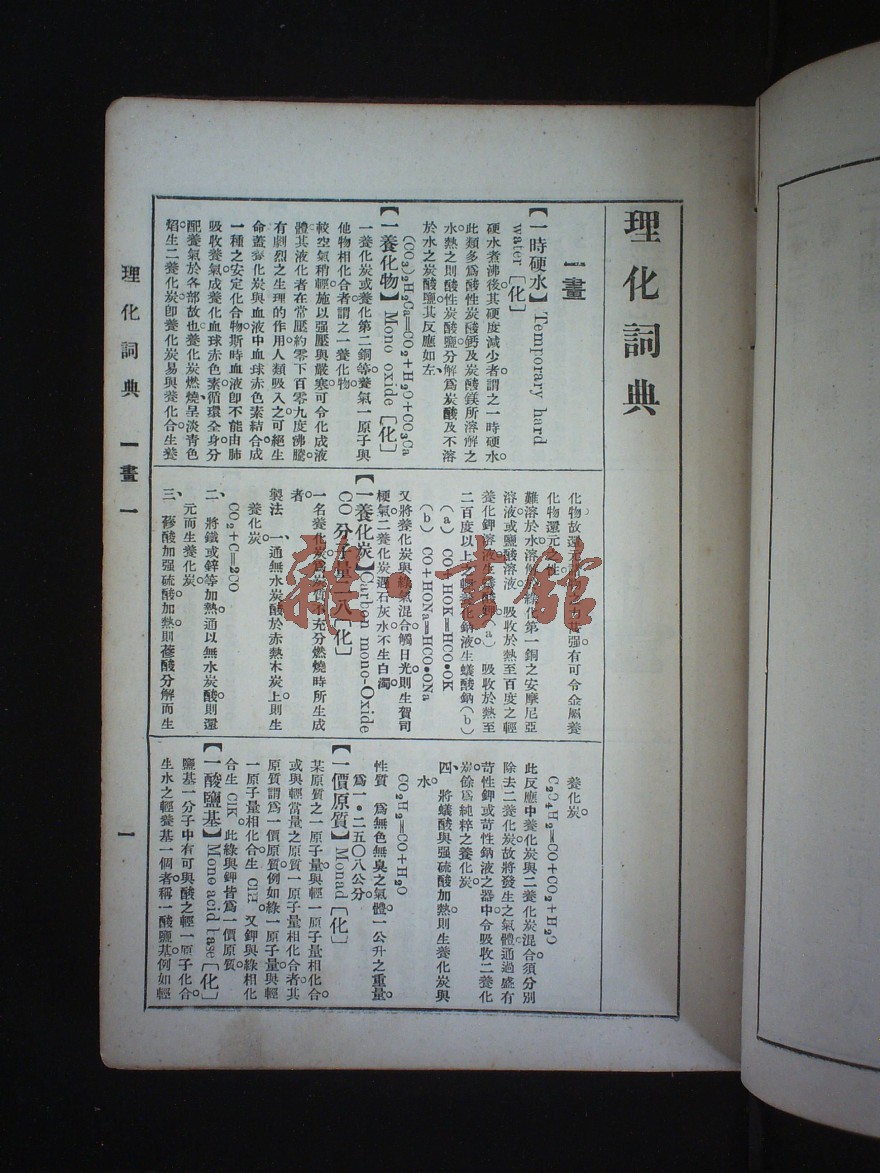 理化詞典
一畫
【一時硬水】 Temporary hard
water [化]
硬水煮沸後其硬度減少者謂之一時硬水。
此類多爲酸性炭酸鈣及炭酸鎂所溶解之
水熱之則酸性炭酸鹽分解爲炭酸及不溶
於水之炭酸鹽其反應如左、
(CO₃)₂H₂Ca=CO₂+H₂O+CO₃Ca
【一養化物】 Mono oxide [化]
一養化炭或養化第二銅等養氣一原子與
他物相化合者謂之一養化物。
較空氣稍輕施以强壓與嚴寒可令化成液
體其液化者在常壓約零下百零九度沸騰
有劇烈之生理的作用人類吸入之可絕生
命蓋養化炭與血液中血球赤色素結合成
一種之安定化合物斯時血液卽不能由肺
吸收養氣成養化血球赤色素循環全身分
配養氣於各部故也養化炭燃燒呈淡青色
焰生二養化炭卽養化炭易與養化合生養
化物故還元
强有可令金屬養
化物還元之性。
難溶於水溶解
綠化第一銅之安摩尼亞
溶液或鹽酸溶液。吸收於熱至百度之輕
養化鉀溶液生
(a) 吸收於熱至
二百度以上之輕養化鈉液生蟻酸鈉(b)
(a) CO+HOK=HCO•OK
(b) CO+HONa=HCO•ONa
又將養化炭與綠氣混合觸日光則生賀司
梗氣二養化炭遇石灰水不生白濁。
【一養化炭】Carbon mono-Oxide
CO 分子量二八 [化]
一名養化炭爲炭質不充分燃燒時所生成
者。
製法 一、通無水炭酸於赤熱木炭上則生
養化炭。
CO₂+C=2CO
二、將鐵或鋅等加熱通以無水炭酸則還
元而生養化炭。
三、蓚酸加强硫酸加熱則蓚酸分解而生
養化炭。
C₂O₄H₂=CO+CO₂+H₂O
此反應中養化炭與二養化炭混合須分別
除去二養化炭故將發生之氣體通過盛有
苛性鉀或苛性鈉液之器中令吸收二養化
炭餘爲純粹之養化炭。
四、將蟻酸與强硫酸加熱則生養化炭與
水。
CO₂H₂=CO+H₂O
性質 爲無色無臭之氣體一公升之重量
爲一•二五〇八公分。
【一價原質】 Monad [化]
某原質之一原子量與輕一原子量相化合
或與輕當量之原質一原子量相化合者其
原質謂爲一價原質例如綠一原子量與輕
一原子量相化合生 ClH。又鉀與綠相化
合生 ClK。此綠與鉀皆爲一價原質。
【一酸鹽基】 Mono acid base [化]
鹽基一分子中有可與酸之輕一原子化合
生水之輕養基一個者稱一酸鹽基例如輕
理化詞典 一畫 一
一
雜書館